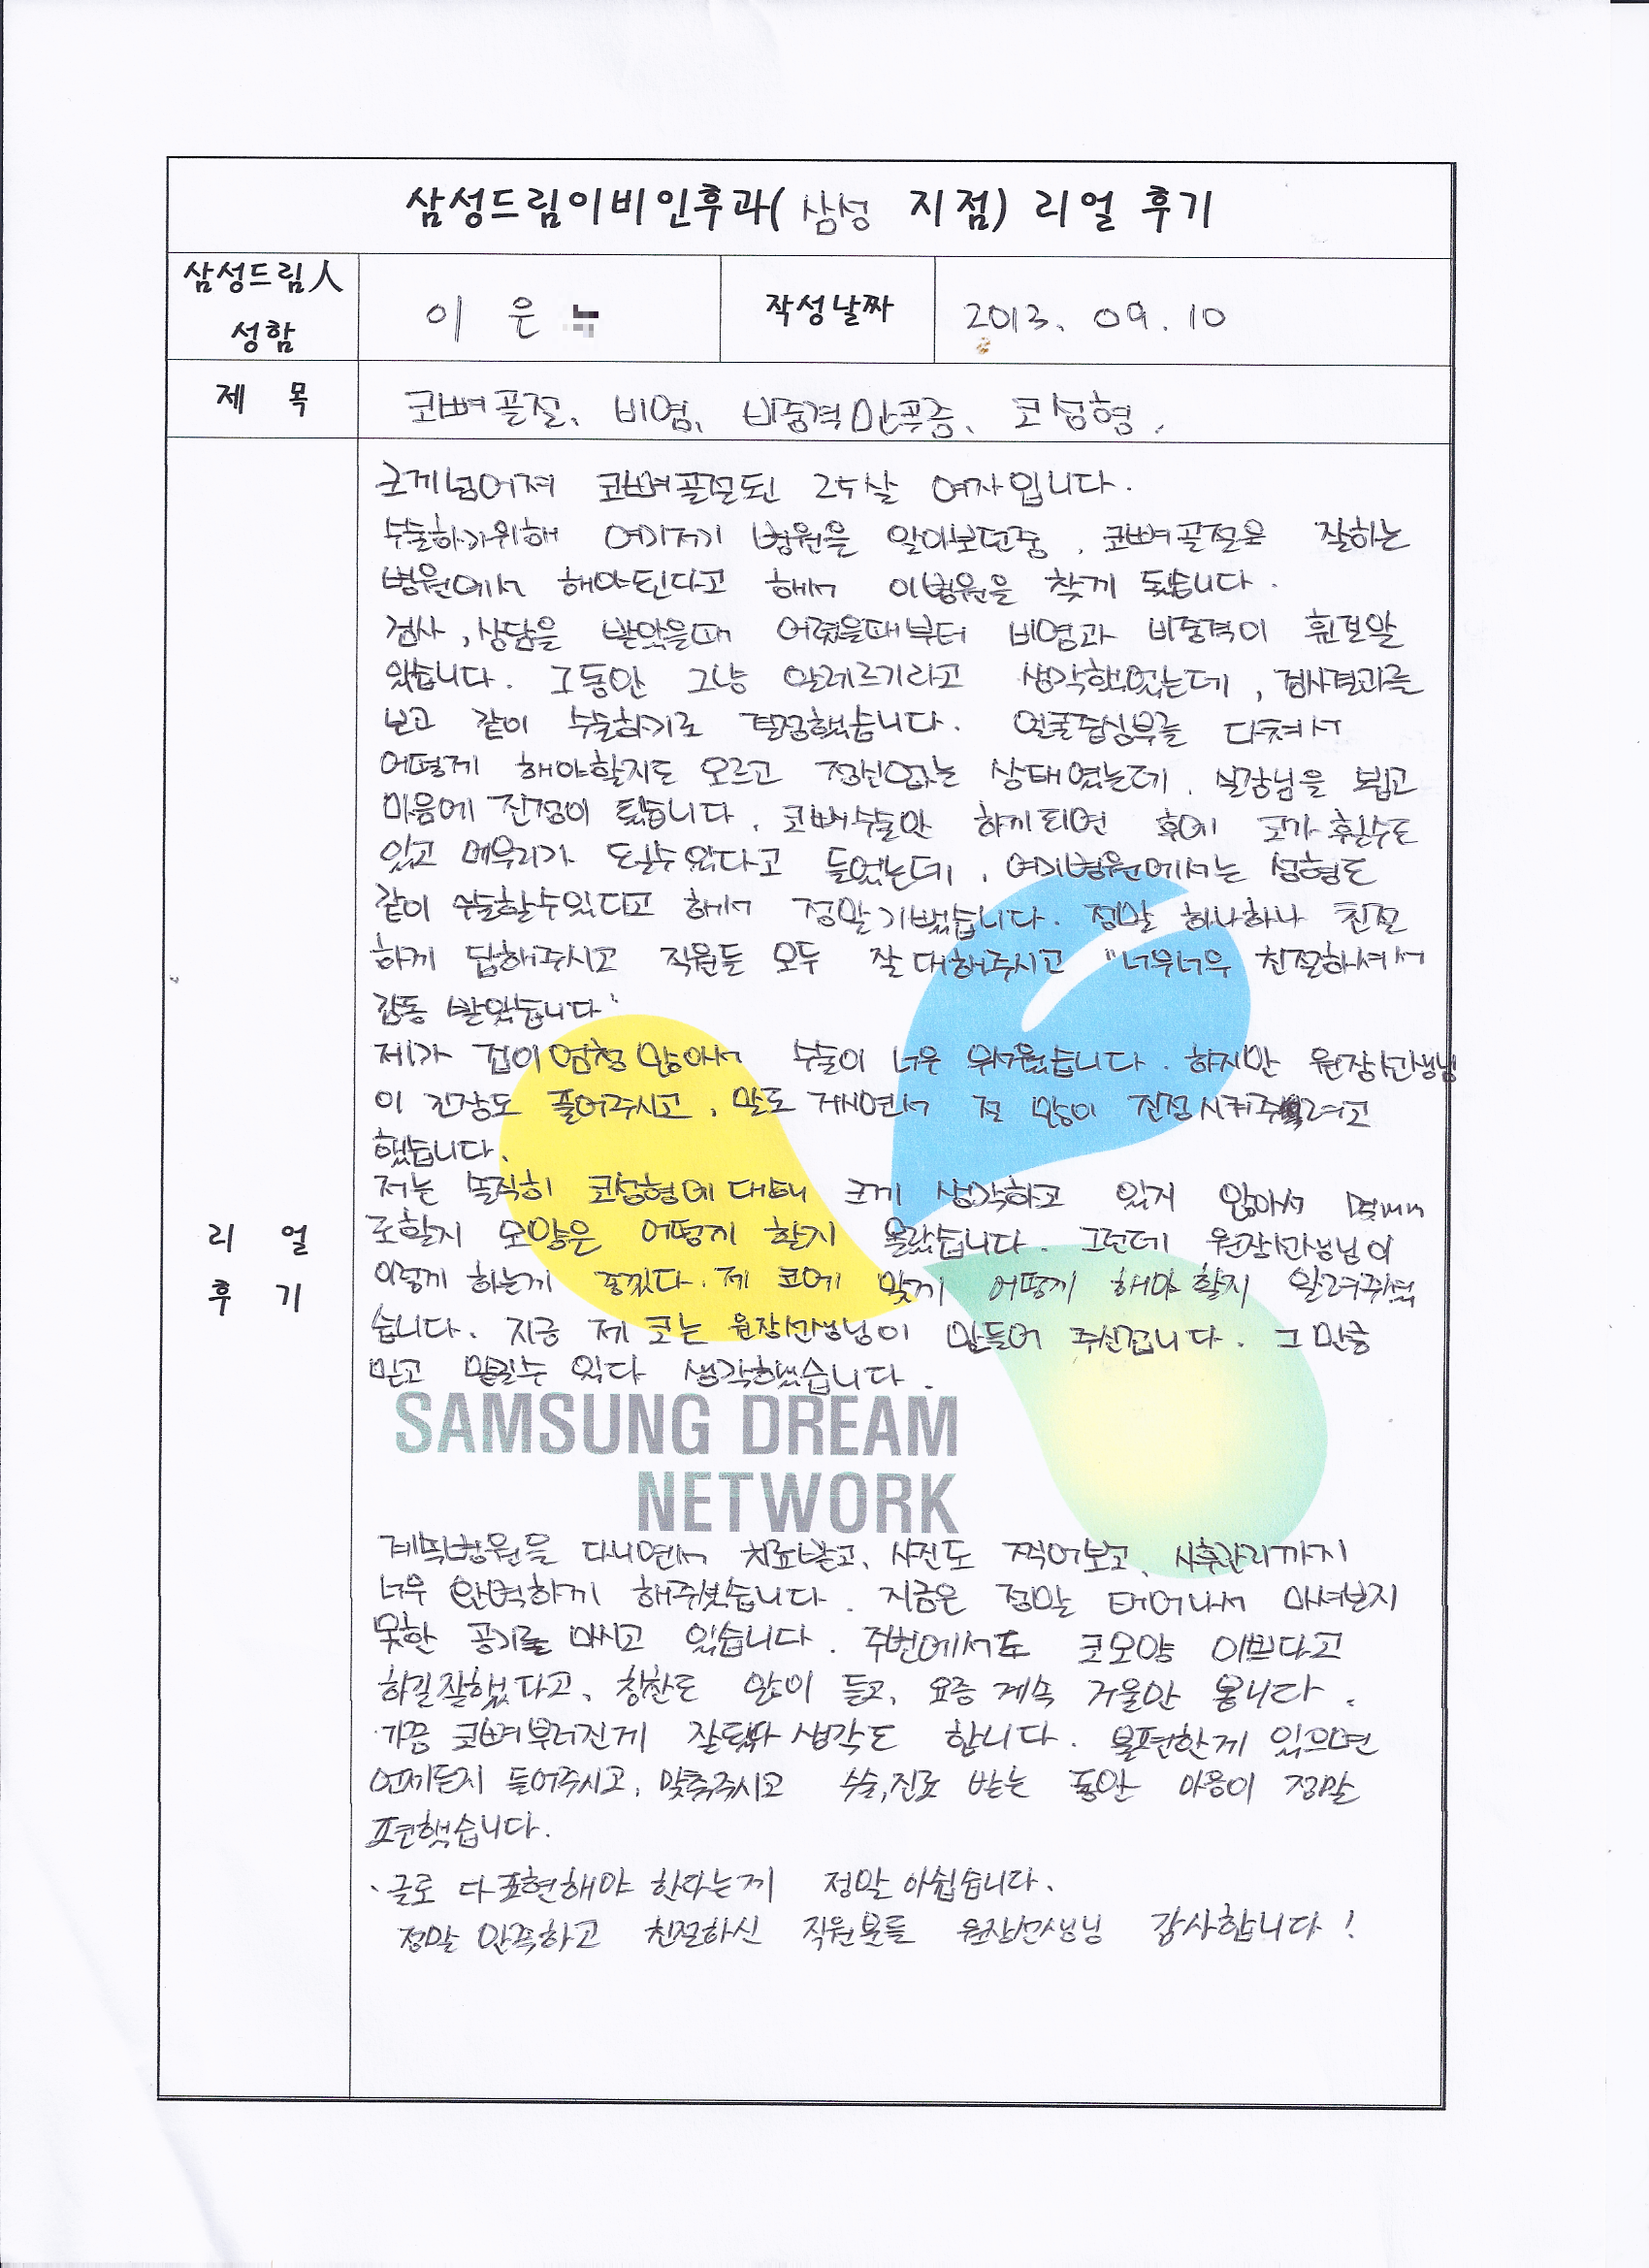 삼성드림이비인후과( 삼성 지점) 리얼 후기
삼성드림人
성함
이 은
작성날짜
2013. 09. 10
제 목
코뼈골절, 비염, 비중격만곡증, 코성형.
크게넘어져 코뼈골절된 25살 여자입니다.
수술하기위해 여기저기 병원을 알아보던중, 코뼈골절을 잘하는
병원에서 해야된다고 해서 이병원을 찾게 됬습니다.
검사, 상담을 받았을때 어렸을때부터 비염과 비중격이 휜걸알
았습니다. 그동안 그냥 알레르기라고 생각했었는데, 검사결과를
보고 같이 수술하기로 결정했습니다. 얼굴중심부를 다쳐서
어떻게 해야할지도 모르고 정신없는 상태였는데, 실장님을 뵙고
마음에 진정이 됬습니다. 코뼈수술만 하게되면 후에 코가 휠수도
있고 메부리가 될수있다고 들었는데, 여기병원에서는 성형도
같이 수술할수있다고 해서 정말기뻤습니다. 정말 하나하나 친절
하게 답해주시고 직원들 모두 잘대해주시고 "너무너무 친절하셔서
감동 받았습니다"
제가 겁이엄청많아서 수술이 너무 무서웠습니다. 하지만 원장선생님
이 긴장도 풀어주시고, 말도 거시면서 절 많이 진정시켜주려고
했습니다.
저는 솔직히 코성형에대해 크게 생각하고 있지 않아서 몇mm
로할지 모양은 어떻게 할지 몰랐습니다. 그런데 원장선생님이
이렇게 하는게 좋겠다. 제 코에 맞게 어떻게 해야할지 알려주셨
습니다. 지금 제 코는 원장선생님이 만들어 주신겁니다. 그 만큼
믿고 맡길수 있다 생각했습니다.
SAMSUNG DREAM
NETWORK
계속병원을 다니면서 치료받고, 사진도 찍어보고, 사후관리까지
너무 완벽하게 해주셧습니다. 지금은 정말 태어나서 마셔보지
못한 공기를 마시고 있습니다. 주변에서도 코모양 이쁘다고
하길잘했다고, 칭찬도 많이 듣고, 요즘 계속 거울만 봅니다.
가끔 코뼈부러진게 잘됬다 생각도 합니다. 불편한게 있으면
언제든지 들어주시고, 맞춰주시고 수술,진료 받는 동안 마음이 정말
편했습니다.
글로 다표현해야 한다는게 정말 아쉽습니다.
정말 만족하고 친절하신 직원분들 원장선생님 감사합니다!
리 얼
후 기